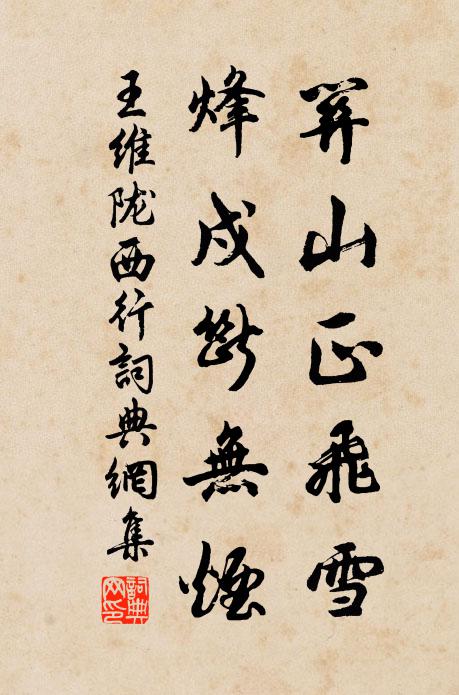 關山正飛雪
烽戍斷無煙
王維陇西行詞典網集
詞典网印